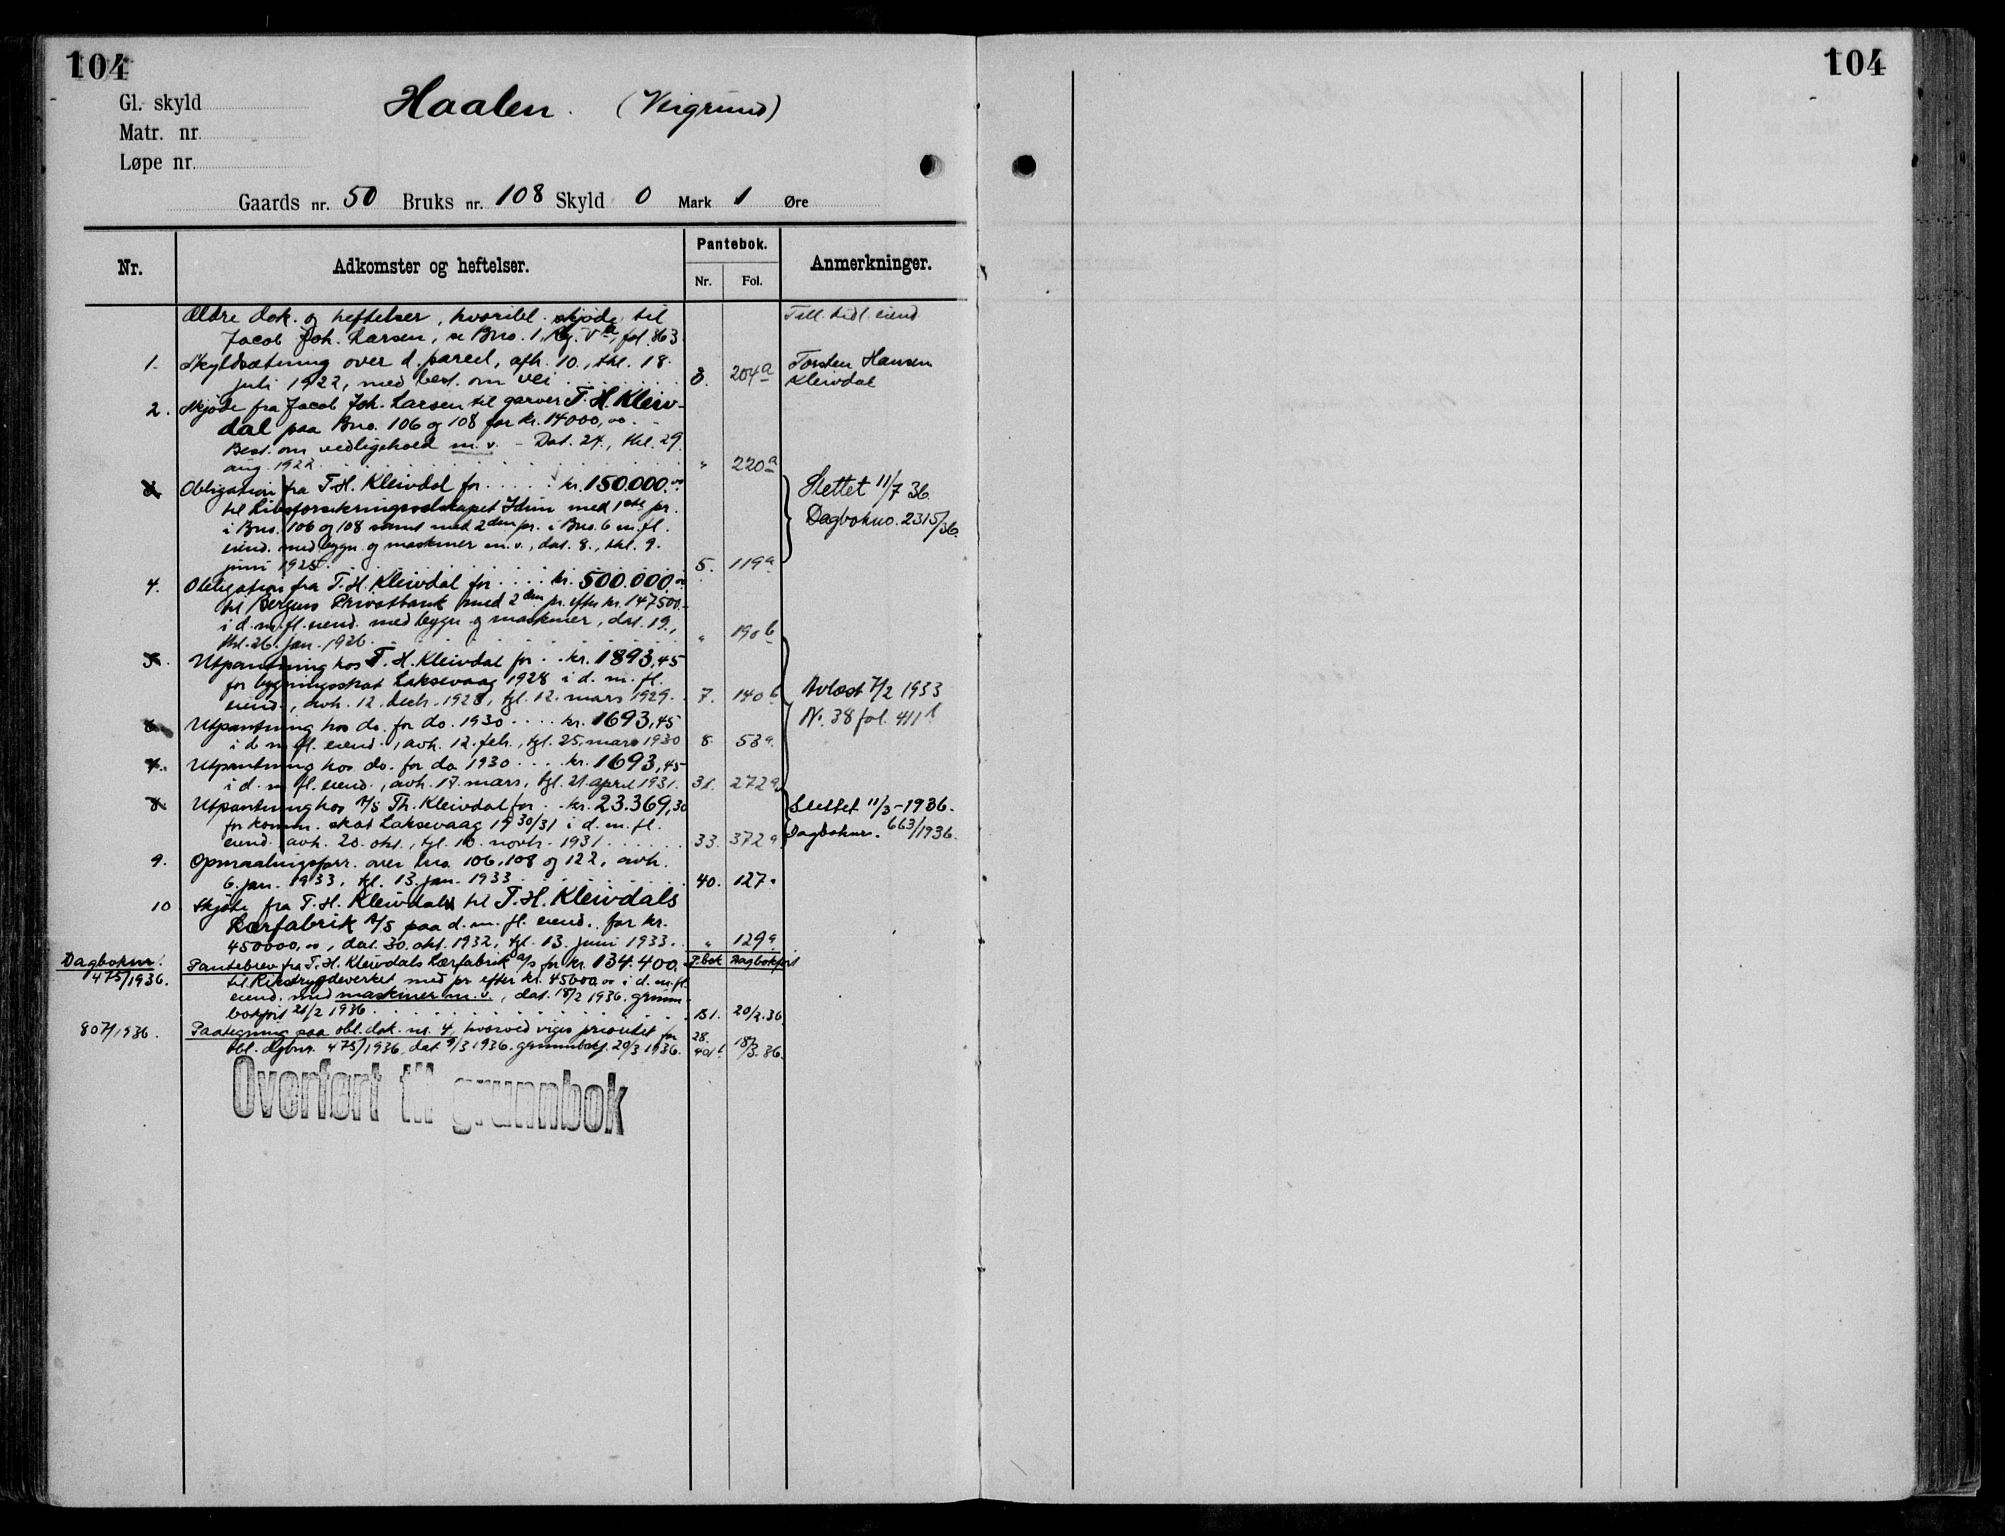 104
104
Gl. skyld
Haalen. (Veigrund)
Matr. nr.
Løpe nr.
Gaards nr. 50 Bruks nr. 108 Skyld 0 Mark 1 Øre
Nr. Adkomster og heftelser. Pantebok. Anmerkninger.
Nr. Fol.
Ældre dok. og heftelser, hvoribl. skjøde til
Till. tidl. eiend.
Jacob Joh. Larsen, se Bno. 1, Rg. V a, fol. 863.
1. Skyldsætning over d. parcel, afh. 10., thl. 18.
juli 1922, med best. om vei 3. 204 a
Torsten Hansen
Kleivdal
2. Skjøde fra Jacob Joh. Larsen til garver T. H. Kleiv-
dal paa Bno. 106 og 108 for kr. 14000,00. -
Best. om vedligehold m. v. - Dat. 24., thl. 29.
aug. 1922 " 220 a
3. Obligation fra T. H. Kleivdal for kr. 150.000.00
til Livsforsikringsselskapet Idun med 1ste pr.
i Bno. 106 og 108 samt med 2den pr. i Bno. 6 m. fl.
eiend. med bygn. og maskiner m. v., dat. 8., thl. 9.
juni 1925. 5. 119 a
Slettet 11/7 36
Dagbokno. 2315/36.
4. Obligation fra T. H. Kleivdal for kr. 500.000.00
til Bergens Privatbank med 2den pr. efter kr. 147500.-
i d. m. fl. eiend. med bygn. og maskiner, dat. 19.,
thl. 26. jan. 1926 " 190 b
5. Utpantning hos T. H. Kleivdal for kr. 1893,45
for bygningsskat Laksevaag 1928 i d. m. fl.
eiend., avh. 12. decb. 1928, tgl. 12. mars 1929. 7. 140 b
Avlæst 7/2 1933
N. 38 fol. 411 b
6. Utpantning hos do. for do. 1930 kr. 1693,45
i d. m. fl. eiend., avh. 12. feb., tgl. 25. mars 1930 8. 53 a
7. Utpantning hos do. for do 1930 kr. 1693,45
i d. m. fl. eiend., avh. 17. mars, tgl. 21. april 1931. 31. 272 a
8. Utpantning hos A/S Th. Kleivdal for kr. 23.369,30
for komm. skat Laksevaag 1930/31 i d. m. fl.
eiend. avh. 20. okt., tgl. 10. novb. 1931 33. 372 a
Slettet 11/3-1936.
Dagboknr. 663/1936.
9. Opmaalingsforr. over bno. 106, 108 og 122, avh.
6. jan. 1933, tgl. 13. jan. 1933 40. 127 a
10 Skjøte fra T. H. Kleivdal til T. H. Kleivdals
Lærfabrik A/S paa d. m. fl. eiend. for kr.
450000,00, dat. 30. okt. 1932, tgl. 13. juni 1933. " 129 a
Dagboknr.
475/1936.
P.bok Dagbokført
Pantebrev fra T. H. Kleivdals Lærfabrik A/S for kr. 134.400.
til Rikstrygdeverket med pr. efter kr. 45000.00 i d. m. fl.
eiend. med maskiner m. v., dat. 18/2 1936. grunn-
bokført 21/2 1936 B1. 20/2.36
807/1936. Paategning paa obl. dok. nr. 4, hvorved viges prioritet for
obl. dgbnr. 475/1936, dat 9/3 1936. grunnbokf. 20/3 1936. 28. 401 b 18/3.36.
Overført til grunnbok